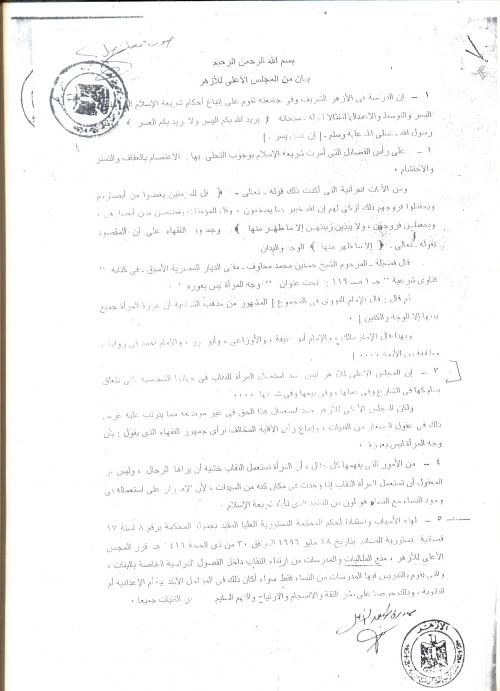 بسم الله الرحمن الرحيم
بيان من المجلس الأعلى للأزهر
١ - إن الدراسة في الأزهر الشريف وفى جامعته تقوم على إتباع أحكام شريعة الإسلام
اليسر والتوسط والاعتدال امتثالا لقوله - سبحانه ﴿ يريد الله بكم اليسر ولا يريد بكم العسر ﴾
رسول الله - صلى الله عليه وسلم - [ إن الدين يسر ] .
٢ - على رأس الفضائل التى أمرت شريعة الإسلام بوجوب التحلى بها : الاعتصام بالعفاف والتستر
والاحتشام .
ومن الآيات القرآنية التى أكدت ذلك قوله - تعالى - ﴿ قل للمؤمنين يغضوا من أبصارهم
ويحفظوا فروجهم ذلك أزكى لهم إن الله خبير بما يصنعون ، وقل للمؤمنات يغضضن من أبصارهن ،
ويحفظن فروجهن ، ولا يبدين زينتهن إلا ما ظهر منها ﴾ وجمهور الفقهاء على أن المقصود
بقوله تعالى - ﴿ إلا ما ظهر منها ﴾ الوجه واليدان
قال فضيلة - المرحوم الشيخ حسنين محمد مخلوف - مفتى الديار المصرية الأسبق - فى كتابه "
فتاوى شرعية " جـ ١ صـ ١١٩ : تحت عنوان " وجه المرأة ليس بعورة " .
ثم قال : قال الإمام النووى فى المجموع [ المشهور من مذهب الشافعية أن عورة المرأة جميع
بدنها إلا الوجه والكفين ] .
وبهذا قال الإمام مالك ، والإمام أبو حنيفة ، والأوزاعى ، وأبو ثور ، والإمام أحمد فى رواية ،
وطائفة من الأئمة ....
٣ - إن المجلس الأعلى للأزهر ليس ضد استعمال المرأة للنقاب فى حياتها الشخصية التى يتعلق
بسلوكها فى الشارع وفى عملها ، وفى بيعها وفى شرائها ....
ولكن المجلس الأعلى للأزهر ضد استعمال هذا الحق فى غير موضعه مما يترتب عليه غرس
ذلك فى عقول الصغار من الفتيات ، وإتباع رأى الأقلية المخالف لرأى جمهور الفقهاء الذى يقول : بأن
وجه المرأة ليس بعورة .
٤ - من الأمور التى يفهمها كل عاقل ، أن المرأة تستعمل النقاب خشية أن يراها الرجال ، وليس من
المعقول أن تستعمل المرأة النقاب إذا وجدت فى مكان كله من السيدات ، لأن الإصرار على استعماله فى
وجود النساء مع النساء هو لون من التشدد الذى تأباه شريعة الإسلام .
٥ - لهذه الأسباب واستنادا لحكم المحكمة الدستورية العليا المقيد بجدول المحكمة برقم ٨ لسنة ١٧
قضائية دستورية الصادر بتاريخ ١٨ مايو ١٩٩٦ الموافق ٣٠ من ذى الحجة ١٤١٦ هـ قرر المجلس
الأعلى للأزهر ، منع الطالبات والمدرسات من ارتداء النقاب داخل الفصول الدراسية الخاصة بالبنات ،
والتى يقوم بالتدريس فيها المدرسات من النساء فقط سواء أكان ذلك فى المراحل الابتدائية أم الإعدادية أم
الثانوية ، وذلك حرصا على نشر الثقة والانسجام والارتياح والفهم السليم بين الفتيات جميعا .
الأزهر